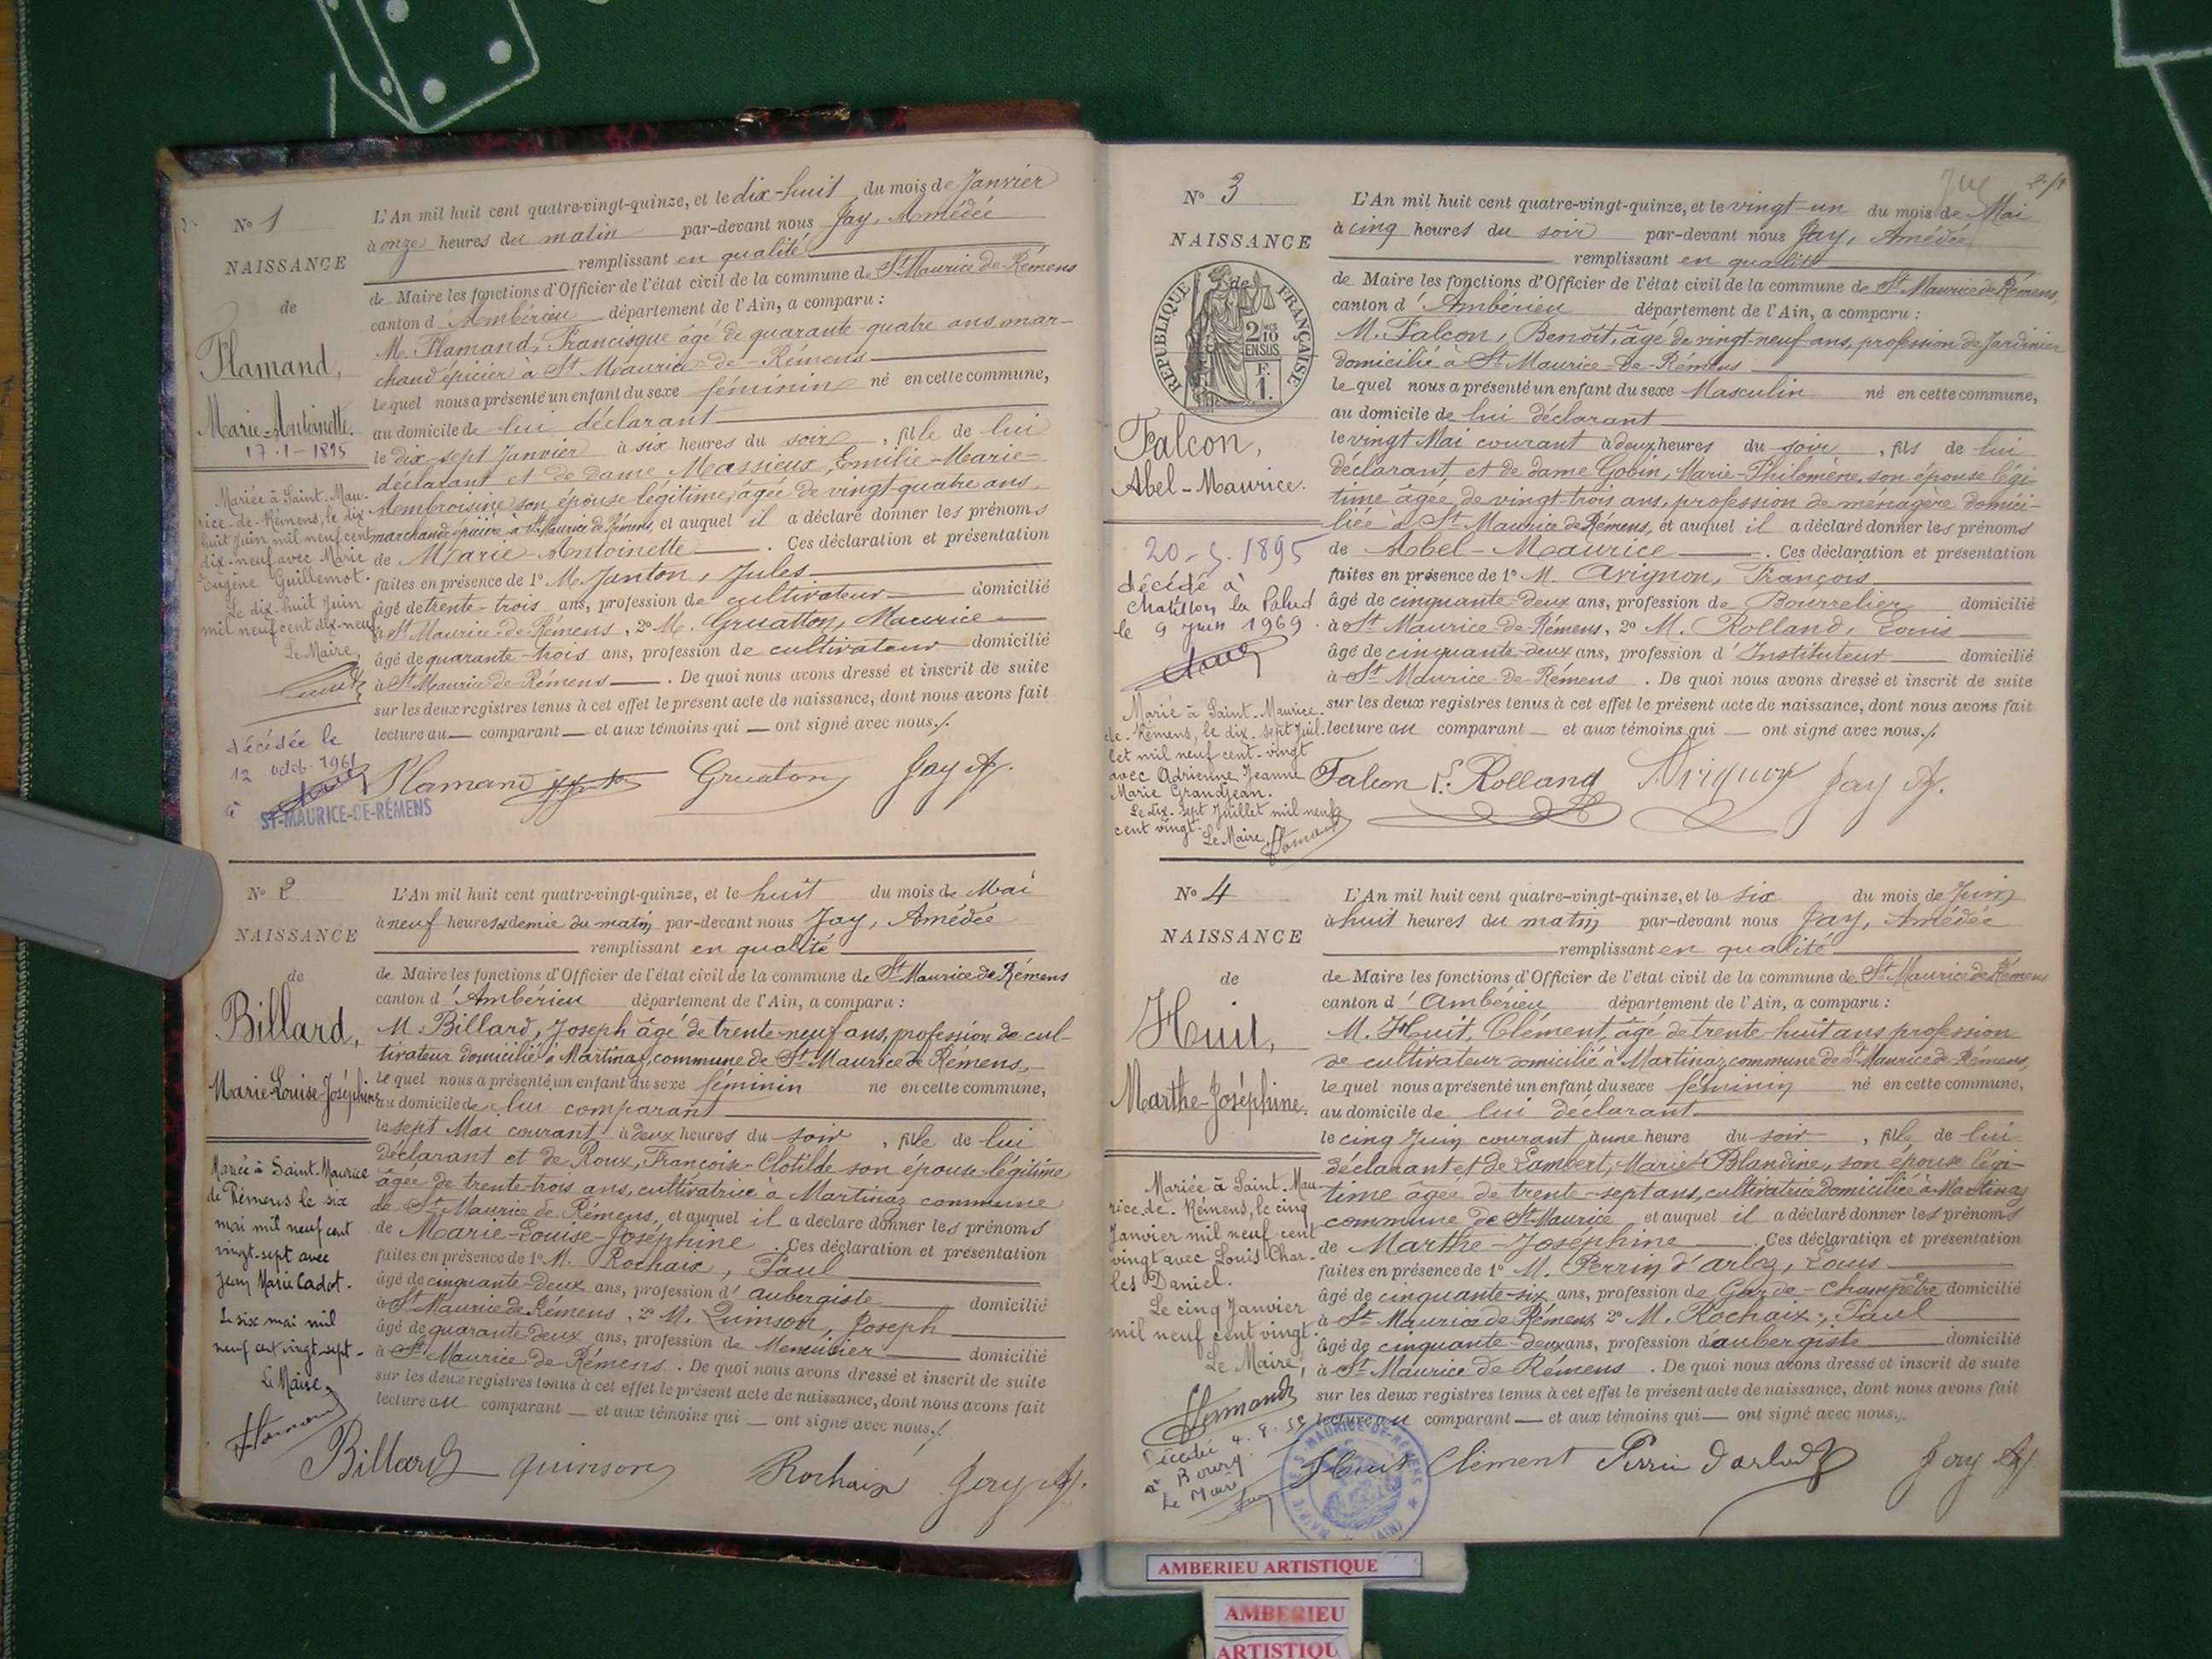 N° 1
NAISSANCE
de
Flamand,
Marie-Antoinette.
17-1-1895
Mariée à Saint-Mau-
rice-de-Rémens, le dix
huit juin mil neuf cent
dix-neuf avec Marie
Eugène Guillemot.
Le dix-huit Juin
mil neuf cent dix-neuf
Le Maire,
décédée le
12 octob. 1961
à ST-MAURICE-DE-RÉMENS
L'An mil huit cent quatre-vingt-quinze, et le dix-huit du mois de Janvier
à onze heures du matin par-devant nous Jay, Amédée
remplissant en qualité
de Maire les fonctions d'Officier de l'état civil de la commune de St Maurice de Rémens
canton d'Ambérieu département de l'Ain, a comparu :
M. Flamand, Francisque âgé de quarante-quatre ans, mar-
chand épicier à St Maurice-de-Rémens
lequel nous a présenté un enfant du sexe féminin né en cette commune,
au domicile de lui déclarant
le dix-sept Janvier à six heures du soir, fille de lui
déclarant et de dame Massieux, Emilie-Marie-
Ambroisine son épouse légitime, âgée de vingt-quatre ans,
marchande épicière à St Maurice de Rémens, et auquel il a déclaré donner les prénoms
de Marie-Antoinette. Ces déclaration et présentation
faites en présence de 1° M. Janton, Jules
âgé de trente-trois ans, profession de cultivateur domicilié
à St Maurice-de-Rémens, 2° M. Gruatton, Maurice
âgé de quarante-trois ans, profession de cultivateur domicilié
à St Maurice-de-Rémens. De quoi nous avons dressé et inscrit de suite
sur les deux registres tenus à cet effet le présent acte de naissance, dont nous avons fait
lecture au comparant et aux témoins qui ont signé avec nous./.
Flamand Gruaton Jay A.
N° 2
NAISSANCE
de
Billard,
Marie-Louise-Joséphine
Mariée à Saint-Maurice
de Rémens le six
mai mil neuf cent
vingt-sept avec
Jean Marie Cadot.
Le six mai mil
neuf cent vingt-sept.
Le Maire,
L'An mil huit cent quatre-vingt-quinze, et le huit du mois de Mai
à neuf heures et demie du matin par-devant nous Jay, Amédée
remplissant en qualité
de Maire les fonctions d'Officier de l'état civil de la commune de St Maurice de Rémens
canton d'Ambérieu département de l'Ain, a comparu :
M. Billard, Joseph âgé de trente-neuf ans, profession de cul-
tivateur domicilié à Martinaz, commune de St Maurice de Rémens
lequel nous a présenté un enfant du sexe féminin né en cette commune,
au domicile de lui comparant
le sept Mai courant à deux heures du soir, fille de lui
déclarant et de Roux, Françoise-Clotilde son épouse légitime
âgée de trente-trois ans, cultivatrice à Martinaz commune
de St Maurice de Rémens, et auquel il a déclaré donner les prénoms
de Marie-Louise-Joséphine. Ces déclaration et présentation
faites en présence de 1° M. Rochaix, Paul
âgé de cinquante-deux ans, profession d'aubergiste domicilié
à St Maurice de Rémens, 2° M. Quinson, Joseph
âgé de quarante-deux ans, profession de Menuisier domicilié
à St Maurice de Rémens. De quoi nous avons dressé et inscrit de suite
sur les deux registres tenus à cet effet le présent acte de naissance, dont nous avons fait
lecture au comparant et aux témoins qui ont signé avec nous./.
Billard quinson Rochaix Jay A.
N° 3
NAISSANCE
de
RÉPUBLIQUE FRANÇAISE
2/10
EN SUS
F.
1.
Falcon,
Abel-Maurice.
20-5-1895
décédé à
Chatillon la Palud
le 9 Juin 1969.
Marié à Saint-Maurice-
de-Rémens, le dix-sept Juil-
let mil neuf cent-vingt
avec Adrienne Jeanne
Marie Grandjean.
Le dix-sept Juillet mil neuf
cent vingt. Le Maire
L'An mil huit cent quatre-vingt-quinze, et le vingt-un du mois de Mai
à cinq heures du soir par-devant nous Jay, Amédée
remplissant en qualité
de Maire les fonctions d'Officier de l'état civil de la commune de St Maurice de Rémens,
canton d'Ambérieu département de l'Ain, a comparu :
M. Falcon, Benoît, âgé de vingt-neuf ans, profession de Jardinier
domicilié à St Maurice-de-Rémens
lequel nous a présenté un enfant du sexe Masculin né en cette commune,
au domicile de lui déclarant
le vingt Mai courant à deux heures du soir, fils de lui
déclarant, et de dame Gobin, Marie-Philomène, son épouse légi-
time âgée de vingt-trois ans, profession de ménagère domici-
liée à St Maurice de Rémens, et auquel il a déclaré donner les prénoms
de Abel-Maurice. Ces déclaration et présentation
faites en présence de 1° M. Avignon, François
âgé de cinquante-deux ans, profession de Bourrelier domicilié
à St Maurice-de-Rémens, 2° M. Rolland, Louis
âgé de cinquante-deux ans, profession d'Instituteur domicilié
à St Maurice-de-Rémens. De quoi nous avons dressé et inscrit de suite
sur les deux registres tenus à cet effet le présent acte de naissance, dont nous avons fait
lecture au comparant et aux témoins qui ont signé avec nous./.
Falcon Rolland Avignon Jay A.
N° 4
NAISSANCE
de
Huit,
Marthe-Joséphine.
Mariée à Saint-Mau-
rice-de-Rémens, le cinq
Janvier mil neuf cent
vingt avec Louis Char-
les Daniel.
Le cinq Janvier
mil neuf cent vingt.
Le Maire,
Flamand
Décédée 4.8.
à Bourg.
Le Maire
MAIRIE DE ST-MAURICE-DE-RÉMENS (AIN)
L'An mil huit cent quatre-vingt-quinze, et le six du mois de Juin
à huit heures du matin par-devant nous Jay, Amédée
remplissant en qualité
de Maire les fonctions d'Officier de l'état civil de la commune de St Maurice de Rémens
canton d'Ambérieu département de l'Ain, a comparu :
M. Huit, Clément, âgé de trente-huit ans profession
de cultivateur domicilié à Martinaz, commune de St Maurice-de-Rémens,
lequel nous a présenté un enfant du sexe féminin né en cette commune,
au domicile de lui déclarant
le cinq Juin courant, à une heure du soir, fille de lui
déclarant et de Lambert, Marie-Blandine, son épouse légi-
time âgée de trente-sept ans, cultivatrice domiciliée à Martinaz
commune de St Maurice et auquel il a déclaré donner les prénoms
de Marthe-Joséphine. Ces déclaration et présentation
faites en présence de 1° M. Perrin d'arloz, Louis
âgé de cinquante-six ans, profession de Garde-Champêtre domicilié
à St Maurice de Rémens, 2° M. Rochaix, Paul
âgé de cinquante-deux ans, profession d'aubergiste domicilié
à St Maurice de Rémens. De quoi nous avons dressé et inscrit de suite
sur les deux registres tenus à cet effet le présent acte de naissance, dont nous avons fait
lecture au comparant et aux témoins qui ont signé avec nous./.
Huit Clément Perrin d'arloz Jay A.
AMBERIEU ARTISTIQUE
AMBERIEU
ARTISTIQU